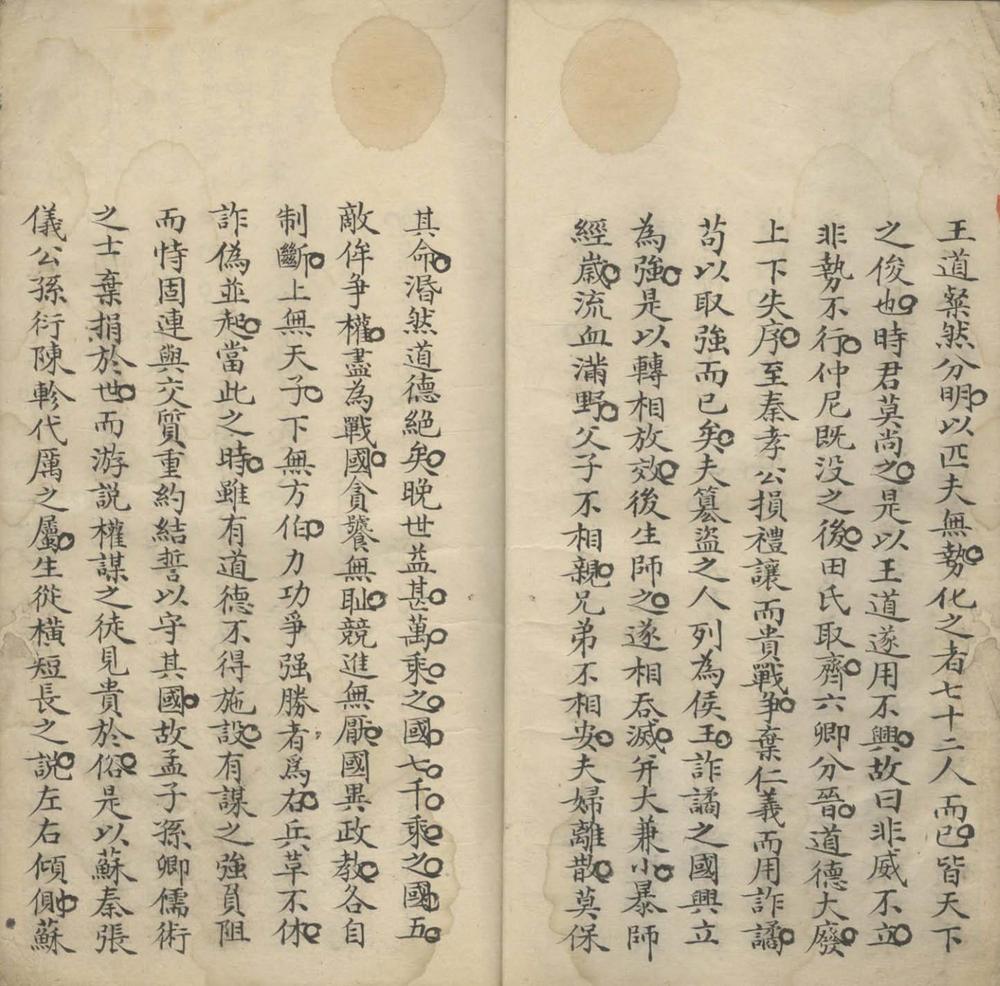 王道粲然分明以匹夫無勢化之者七十二人而已皆天下
之俊也時君莫尚之是以王道遂用不興故曰非威不立
非勢不行仲尼既没之後田氏取齊六卿分晉道德大廢
上下失序至秦孝公損禮讓而貴戰争棄仁義而用詐譎
苟以取強而已矣夫簒盜之人列為侯王詐譎之國興立
為強是以轉相放效後生師之遂相吞滅并大兼小暴師
經歲流血滿野父子不相親兄弟不相安夫婦離散莫保
其命湣然道德絕矣晚世益甚萬乘之國七千乘之國五
敵侔争權盡為戰國貪饕無耻競進無厭國異政教各自
制斷上無天子下無方伯力功爭强勝者為右兵革不休
詐偽並起當此之時雖有道德不得施設有謀之強員阻
而恃固連與交質重約結誓以守其國故孟子孫卿儒術
之士棄捐於世而游説權謀之徒見貴於俗是以蘇秦張
儀公孫衍陳軫代厲之屬生從横短長之説左右傾側蘇